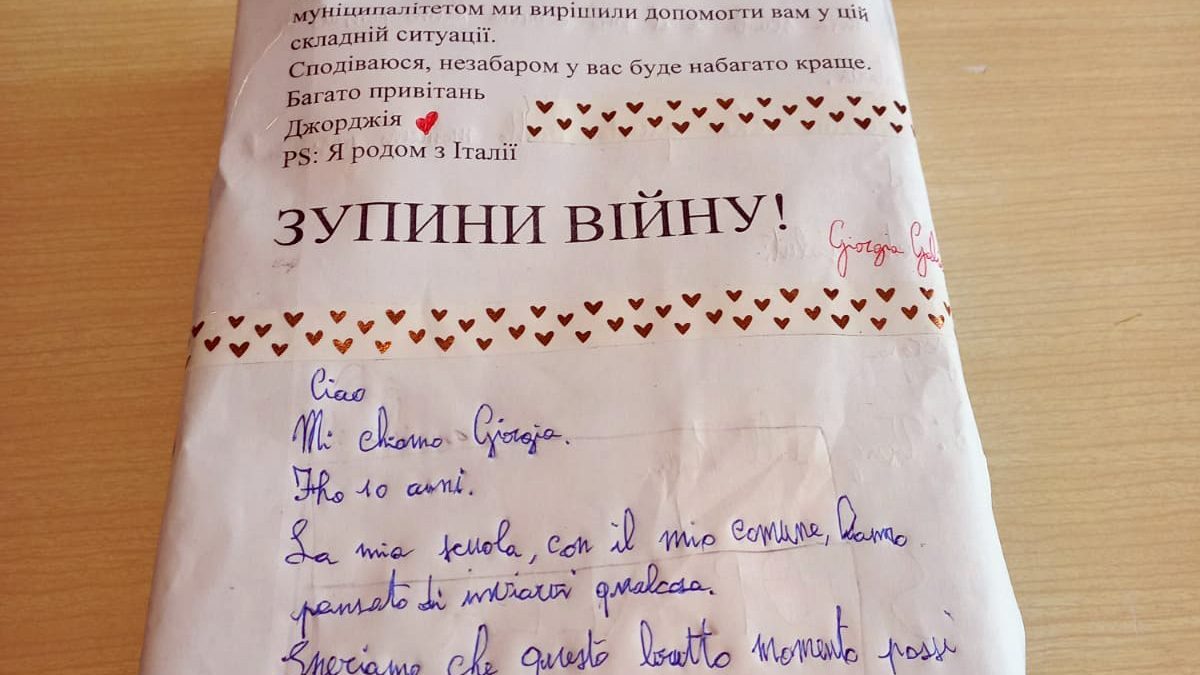 муніципалітетом ми вирішили допомогти вам у цій
складній ситуації.
Сподіваюся, незабаром у вас буде набагато краще.
Багато привітань
Джорджія
PS: Я родом з Італії
ЗУПИНИ ВІЙНУ!
Giorgia
Ciao
Mi chiamo Giorgia.
Ho 10 anni.
La mia scuola, con il mio comune, hanno
pensato di inviarvi qualcosa.
Speriamo che questo brutto momento passi